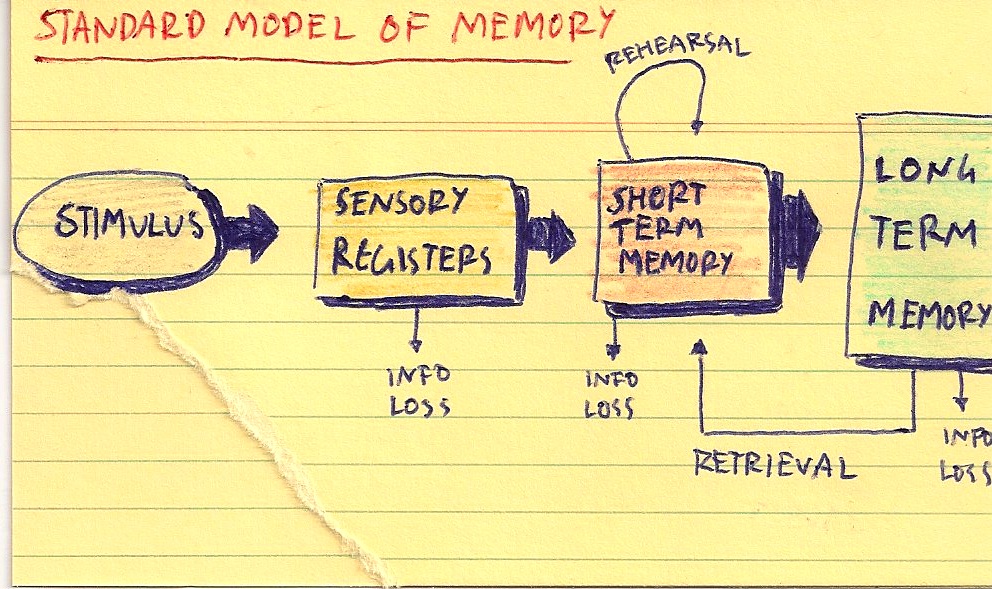 STANDARD MODEL OF MEMORY
REHEARSAL
STIMULUS
SENSORY
REGISTERS
SHORT
TERM
MEMORY
LONG
TERM
MEMORY
INFO
LOSS
INFO
LOSS
INFO
LOSS
RETRIEVAL